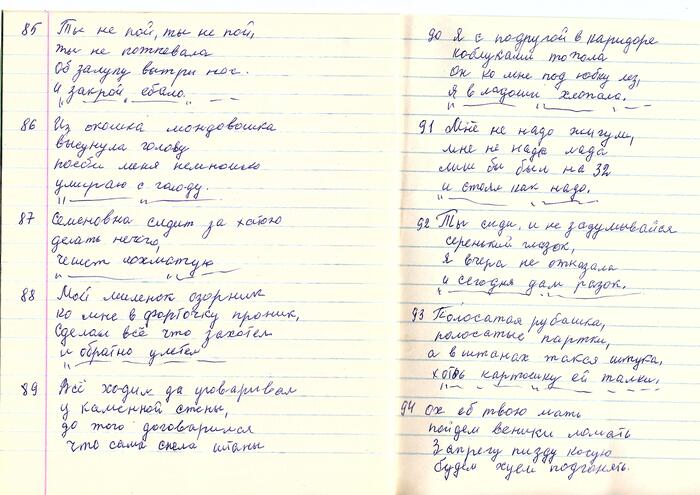 85 Ты не пой, ты не пой,
ты не потпевала
Об залупу вытри нос.
и закрой ебало.
86 Из окошка мандовошка
высунула голову
поеби меня немношко
умираю с голоду.
87 Семеновна сидит за хатою
делать нечего,
чешет лохматую
88 Мой миленок озорник
ко мне в форточку проник,
Сделал всё что захотел
и обратно улетел
89 Всё ходил да уговаривал
у каменной стены,
до того договорился
что сама сняла штаны
90 Я с подругой в каридоре
каблуками топала
Он ко мне под юбку лез,
Я в ладоши хлопала.
91 Мне не надо жигули,
мне не надо лада
лиш бы был на 32
и стоял как надо.
92 Ты сиди, и не задумывайся
серенький глазок,
Я вчера не отказала
и сегодня дам разок.
93 Полосатая рубашка,
полосатые партки,
а в штанах такая штука,
хоть картошку ей талки,
94 Ох еб твою мать
пойдем веники ломать
Запрегу пизду косую
будем хуем подгонять.